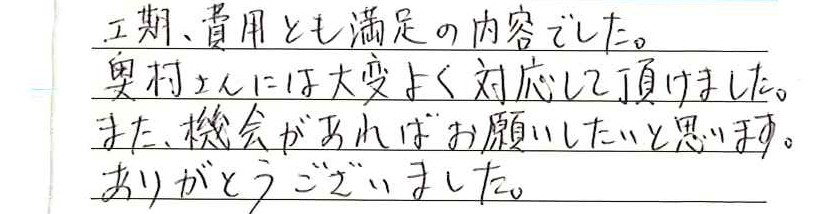 工期、費用とも満足の内容でした。
奥村さんには大変よく対応して頂けました。
また、機会があればお願いしたいと思います。
ありがとうございました。